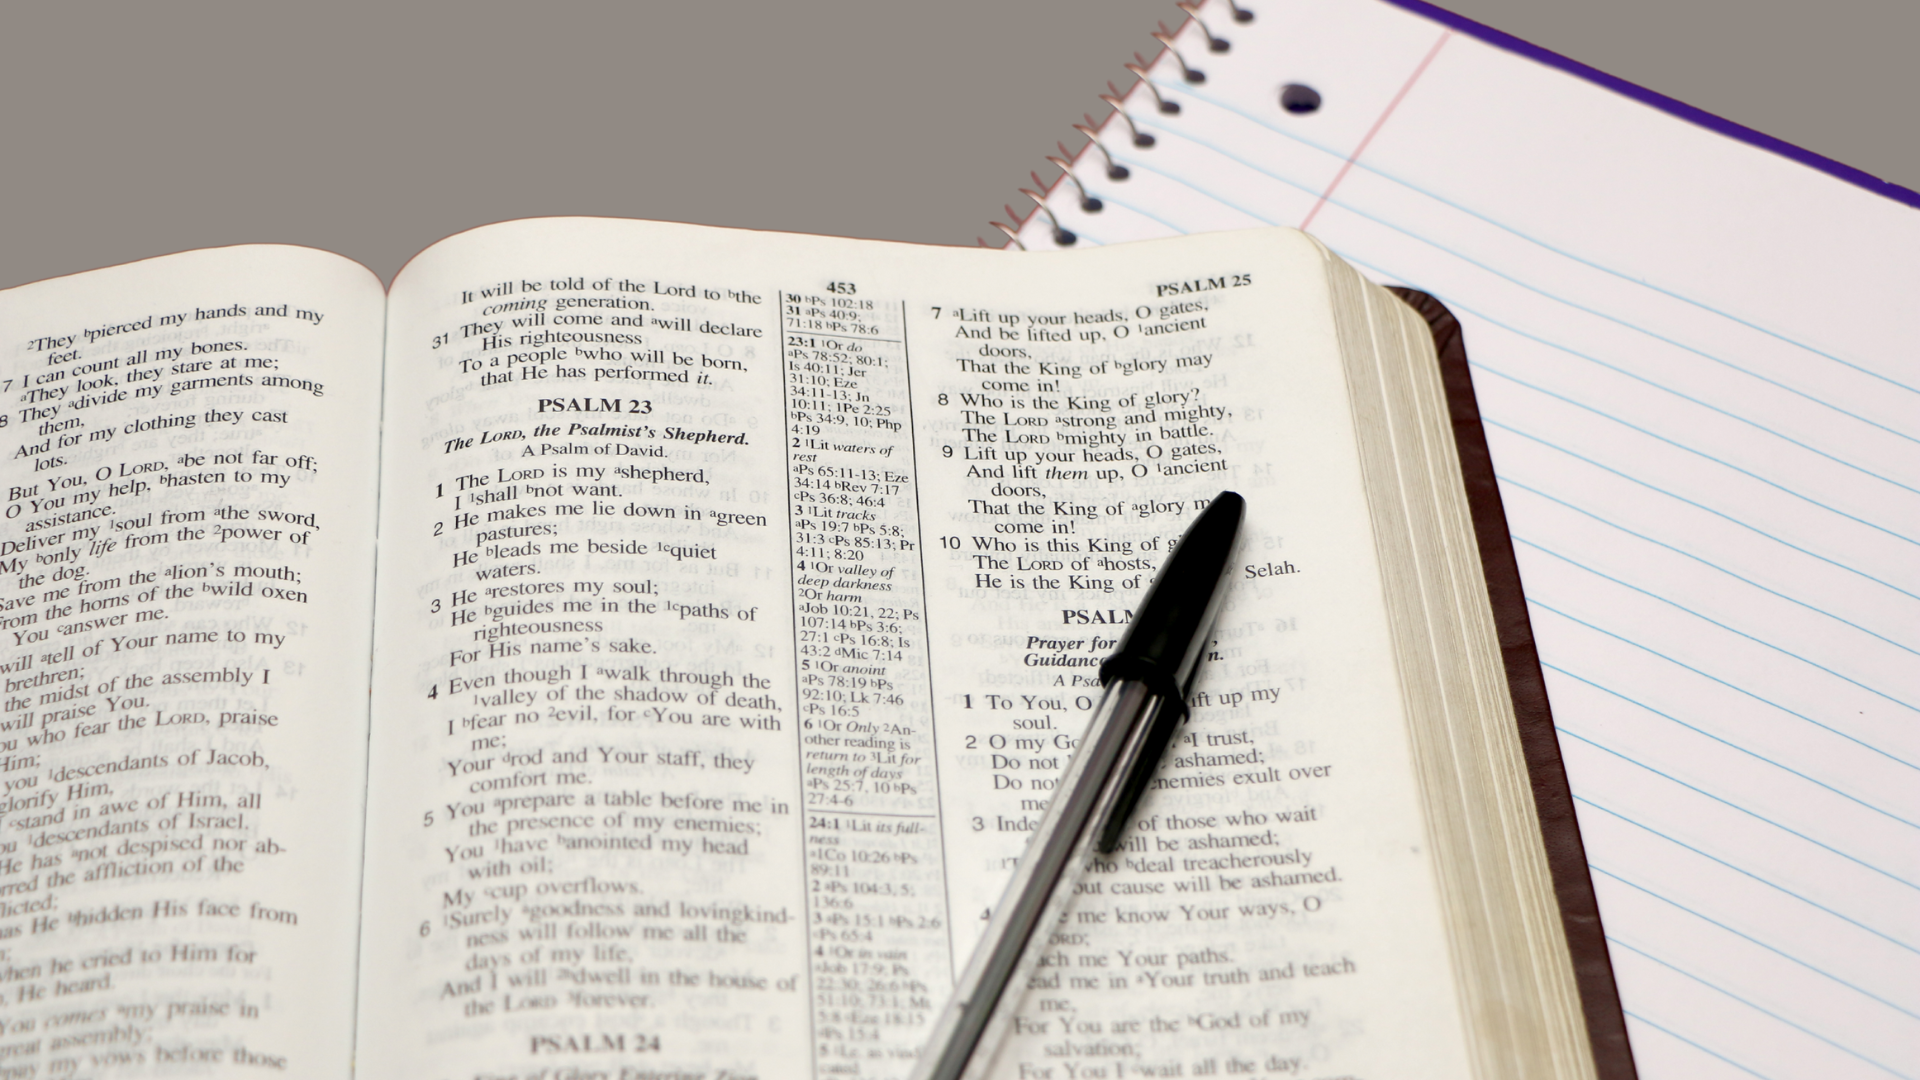 ²They ᵇpierced my hands and my
feet.
7 I can count all my bones.
ᵃThey look, they stare at me;
8 They ᵃdivide my garments among
them,
And for my clothing they cast
lots.
But You, O LORD, ᵃbe not far off;
O You my help, ᵇhasten to my
assistance.
Deliver my ¹soul from ᵃthe sword,
My ᵇonly life from the ²power of
the dog.
Save me from the ᵃlion's mouth;
From the horns of the ᵇwild oxen
You ᶜanswer me.
will ᵃtell of Your name to my
brethren;
the midst of the assembly I
will praise You.
who fear the LORD, praise
Him;
you ¹descendants of Jacob,
glorify Him,
ᶜstand in awe of Him, all
¹descendants of Israel.
He has ᵃnot despised nor ab-
the affliction of the
has He ᵇhidden His face from
when he cried to Him for
He heard.
You comes ᵃmy praise in
great assembly;
pay my vows before those
453
It will be told of the Lord to ᵇthe
coming generation.
31 They will come and ᵃwill declare
His righteousness
To a people ᵇwho will be born,
that He has performed it.
PSALM 23
The LORD, the Psalmist's Shepherd.
A Psalm of David.
1 The LORD is my ᵃshepherd,
I ¹shall ᵇnot want.
2 He makes me lie down in ᵃgreen
pastures;
He ᵇleads me beside ¹ᶜquiet
waters.
3 He ᵃrestores my soul;
He ᵇguides me in the ¹ᶜpaths of
righteousness
For His name's sake.
4 Even though I ᵃwalk through the
¹valley of the shadow of death,
I ᵇfear no ²evil, for ᶜYou are with
me;
Your ᵈrod and Your staff, they
comfort me.
5 You ᵃprepare a table before me in
the presence of my enemies;
You ¹have ᵇanointed my head
with oil;
My ᶜcup overflows.
6 ¹Surely ᵃgoodness and lovingkind-
ness will follow me all the
days of my life,
And I will ²ᵇdwell in the house of
the LORD ³forever.
PSALM 24
King of Glory Entering Zion
30 ᵇPs 102:18
31 ᵃPs 40:9;
71:18 ᵇPs 78:6
23:1 ¹Or do
ᵃPs 78:52; 80:1;
Is 40:11; Jer
31:10; Eze
34:11-13; Jn
10:11; 1Pe 2:25
ᵇPs 34:9, 10; Php
4:19
2 ¹Lit waters of
rest
ᵃPs 65:11-13; Eze
34:14 ᵇRev 7:17
ᶜPs 36:8; 46:4
3 ¹Lit tracks
ᵃPs 19:7 ᵇPs 5:8;
31:3 ᶜPs 85:13; Pr
4:11; 8:20
4 ¹Or valley of
deep darkness
²Or harm
ᵃJob 10:21, 22; Ps
107:14 ᵇPs 3:6;
27:1 ᶜPs 16:8; Is
43:2 ᵈMic 7:14
5 ¹Or anoint
ᵃPs 78:19 ᵇPs
92:10; Lk 7:46
ᶜPs 16:5
6 ¹Or Only ²An-
other reading is
return to ³Lit for
length of days
ᵃPs 25:7, 10 ᵇPs
27:4-6
24:1 ¹Lit its full-
ness
ᵃ1Co 10:26 ᵇPs
89:11
2 ᵃPs 104:3, 5;
136:6
3 ᵃPs 15:1 ᵇPs 2:6
ᶜPs 65:4
4 ¹Or in vain
ᵃJob 17:9; Ps
22:30; 26:6 ᵇPs
51:10; 73:1; Mt
5:8 ᶜEze 18:15
ᵈPs 15:4
PSALM 25
7 ᵃLift up your heads, O gates,
And be lifted up, O ¹ancient
doors,
That the King of ᵇglory may
come in!
8 Who is the King of glory?
The LORD ᵃstrong and mighty,
The LORD ᵇmighty in battle.
9 Lift up your heads, O gates,
And lift them up, O ¹ancient
doors,
That the King of ᵃglory m
come in!
10 Who is this King of g
The LORD of ᵃhosts,
He is the King of Selah.
PSALM
Prayer for
Guidance
A Psa
1 To You, O lift up my
soul.
2 O my Go ᵃI trust,
Do not ashamed;
Do not enemies exult over
me
3 Inde of those who wait
will be ashamed;
who ᵇdeal treacherously
out cause will be ashamed.
4 me know Your ways, O
ORD;
ach me Your paths.
ead me in ᵃYour truth and teach
me,
For You are the ᵇGod of my
salvation;
For You I ᶜwait all the day.